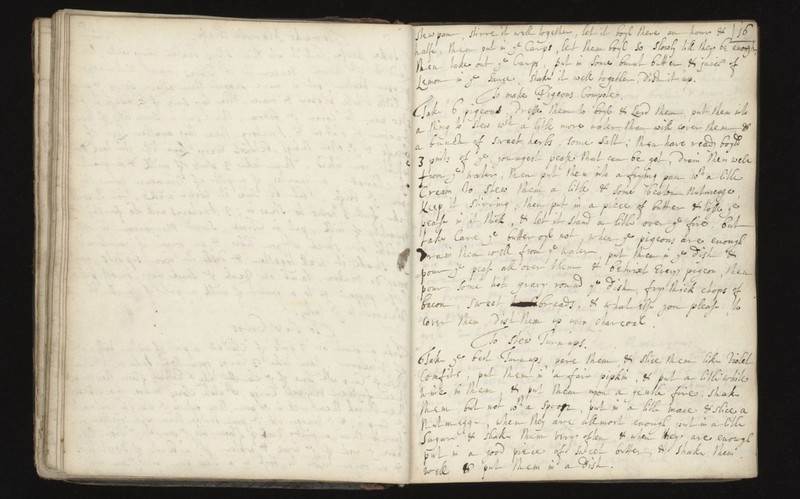 stew pan, stirre it well together, let it boyl there an hour &
halfe, then put in ye Carps, let them boyl so slowly till they be enough
then take out ye Carps, put in some burnt butter & juice of
Lemon in ye Sauce, shake it well together, Dish it up.
16
To make Pigeons Compote.
Take 6 pigeons, Dresse them to boyl & Lard them, put them into
a thing to stew wth a little more water than will cover them &
a bundle of sweet herbs, some salt; then have ready boyld
3 pints of ye youngest pease that can be got, drain them well
from ye water, then put them into a frying pan wth a little
Cream so stew them a little & some beaten Nutmegge
keep it stirring, then put in a piece of butter & tosse ye
pease in it thick, & let it stand a little over ye fire but
take Care ye butter oyl not, when ye pigeons are enough
draw them well from ye water, put them in ye Dish &
pour ye pease all over them & betwixt Every pigeon, then
pour some hot gravy round ye Dish, fry thick chops of
bacon, sweet breads, & what else you please to
cover them Dish them up over charcoal.
To stew Turnups.
Take ye best Turnups, pare them & slice them like Violet
Comfits, put them in a fair pipkin, & put a little white
wine in them & put them upon a gentle fire, shake
them but not wth a spoon, put in a little mace & slice a
Nutmegge, when they are allmost enough put in a little
Sugar & shake them very often & when they are enough
put in a good piece of sweet butter, & shake them
well & put them in a Dish.